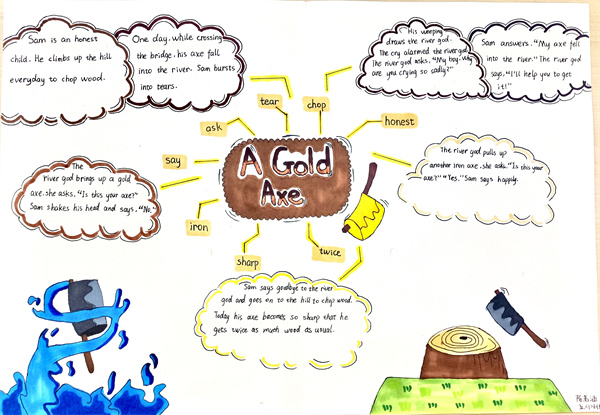 Sam is an honest
child. He climbs up the hill
everyday to chop wood.
One day, while crossing
the bridge, his axe fall
into the river. Sam bursts
into tears.
His weeping
draws the river god.
The cry alarmed the river god
The river god asks. "My boy. why
are you crying so sadly?"
Sam answers. "My axe fell
into the river." The river god
says. "I'll help you to get
it!"
tear
chop
ask
honest
say
A Gold
Axe
iron
sharp
twice
The
river god brings up a gold
axe. she asks. "Is this your axe?"
Sam shakes his head and says, "No."
The river god pulls up
another iron axe. she asks. "Is this your
axe?" "Yes." Sam says happily.
Sam says goodbye to the river
god and goes on to the hill to chop wood.
Today his axe becomes so sharp that he
gets twice as much wood as usual.